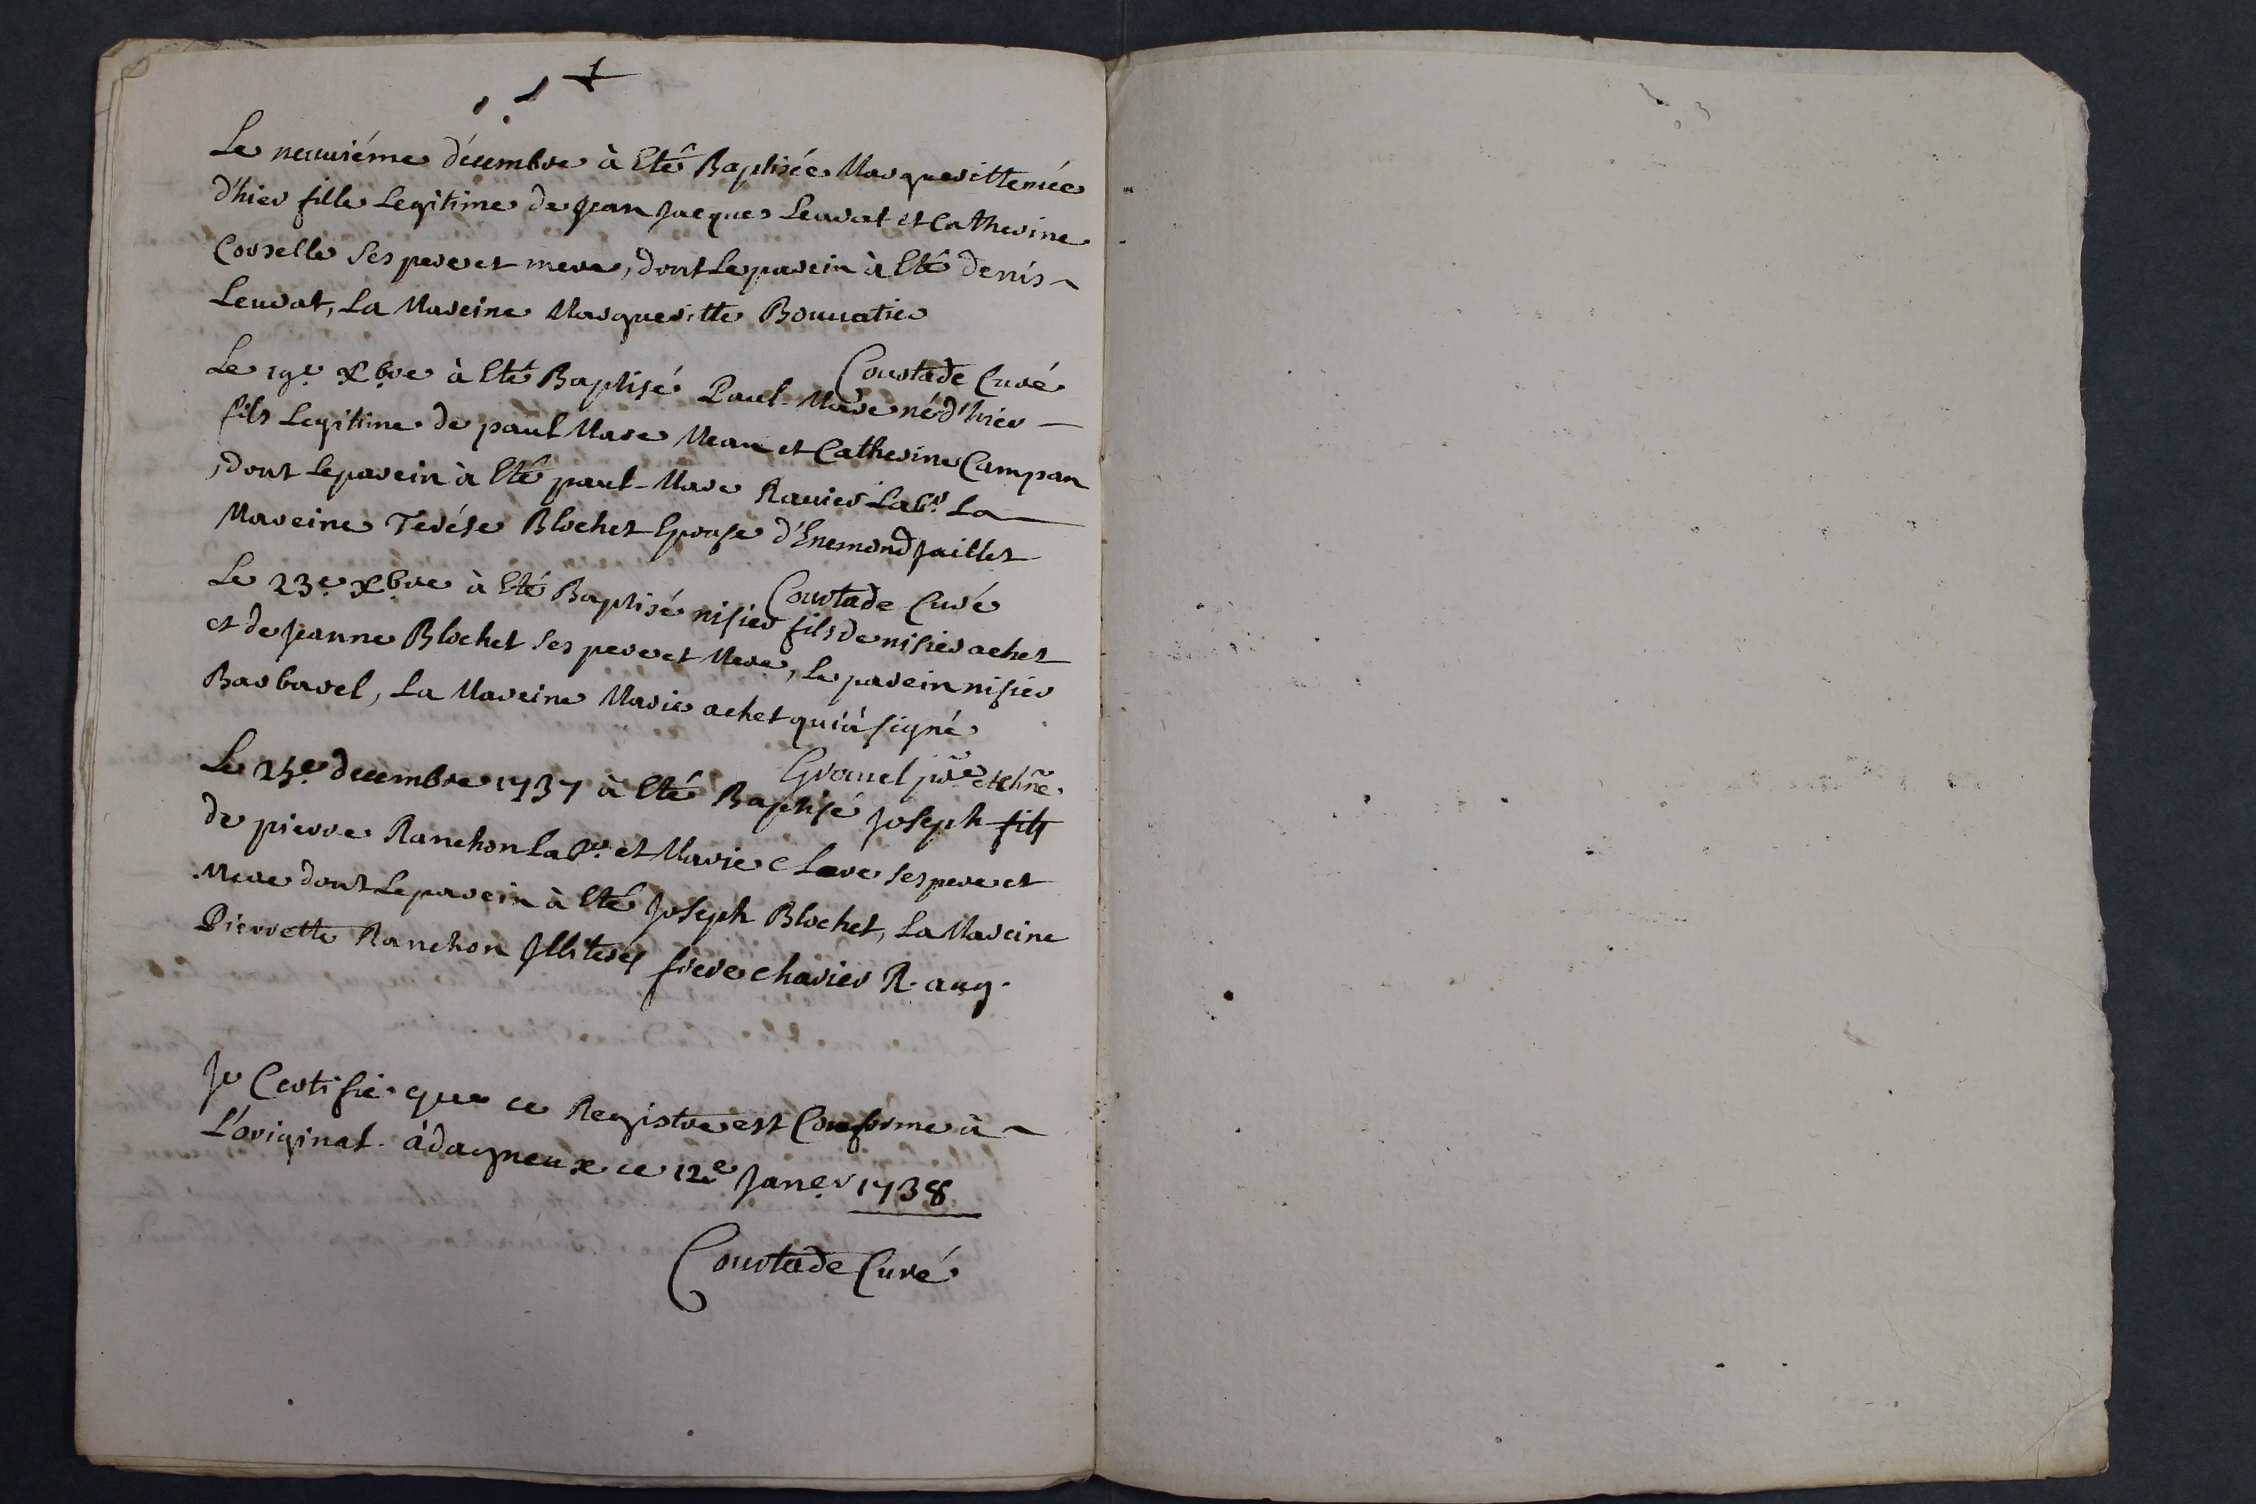 Le neuuiéme décembre à Eté Baptisée Margueritte née
d'hier fille Legitime de Jean Jacques Leurat et Catherine
Corselle ses pere et mere, dont Le parein à Eté denis
Leurat, La Mareine Marguerite Bouuatier
Courtade Curé
Le 19e xbre à Eté Baptisé Paul-Marc né d'hier
fils Legitime de paul Marc Mean et Catherine Campan
, dont Le parein à Eté paul-Marc Rauier Labr. La
Mareine Terése Blochet Epouse d'Enemond Jaillet
Courtade Curé
Le 23e xbre à Eté Baptisé nisier fils de nisier achet
et de Jeanne Blochet ses pere et Mere, Le parein nisier
Barbarel, La Mareine Marie achet qui à signé
Gromel
Le 25e decembre 1737 à Eté Baptisé Joseph fils
de pierre Ranchon Labr. et Marie Clare ses pere et
Mere dont Le parein à Eté Joseph Blochet, La Mareine
Pierrette Ranchon Illiterés frere charier R. aug.
Je Certifie que ce Registre est Conforme à
L'original. à dagneux ce 12e Janer 1738
Courtade Curé